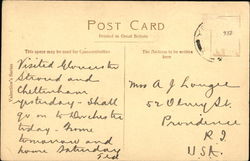 POST CARD
Printed in Great Britain
This space may be used for Communication
The Address to be written here
Valentine's Series
Visited Gloucester
Stroud and
Cheltenham
yesterday - Shall
go on to Dorchester
today - Home
tomorrow and
home Saturday
Ted
Mrs A J
52 Olney St.
Providence
R.I.
U.S.A.